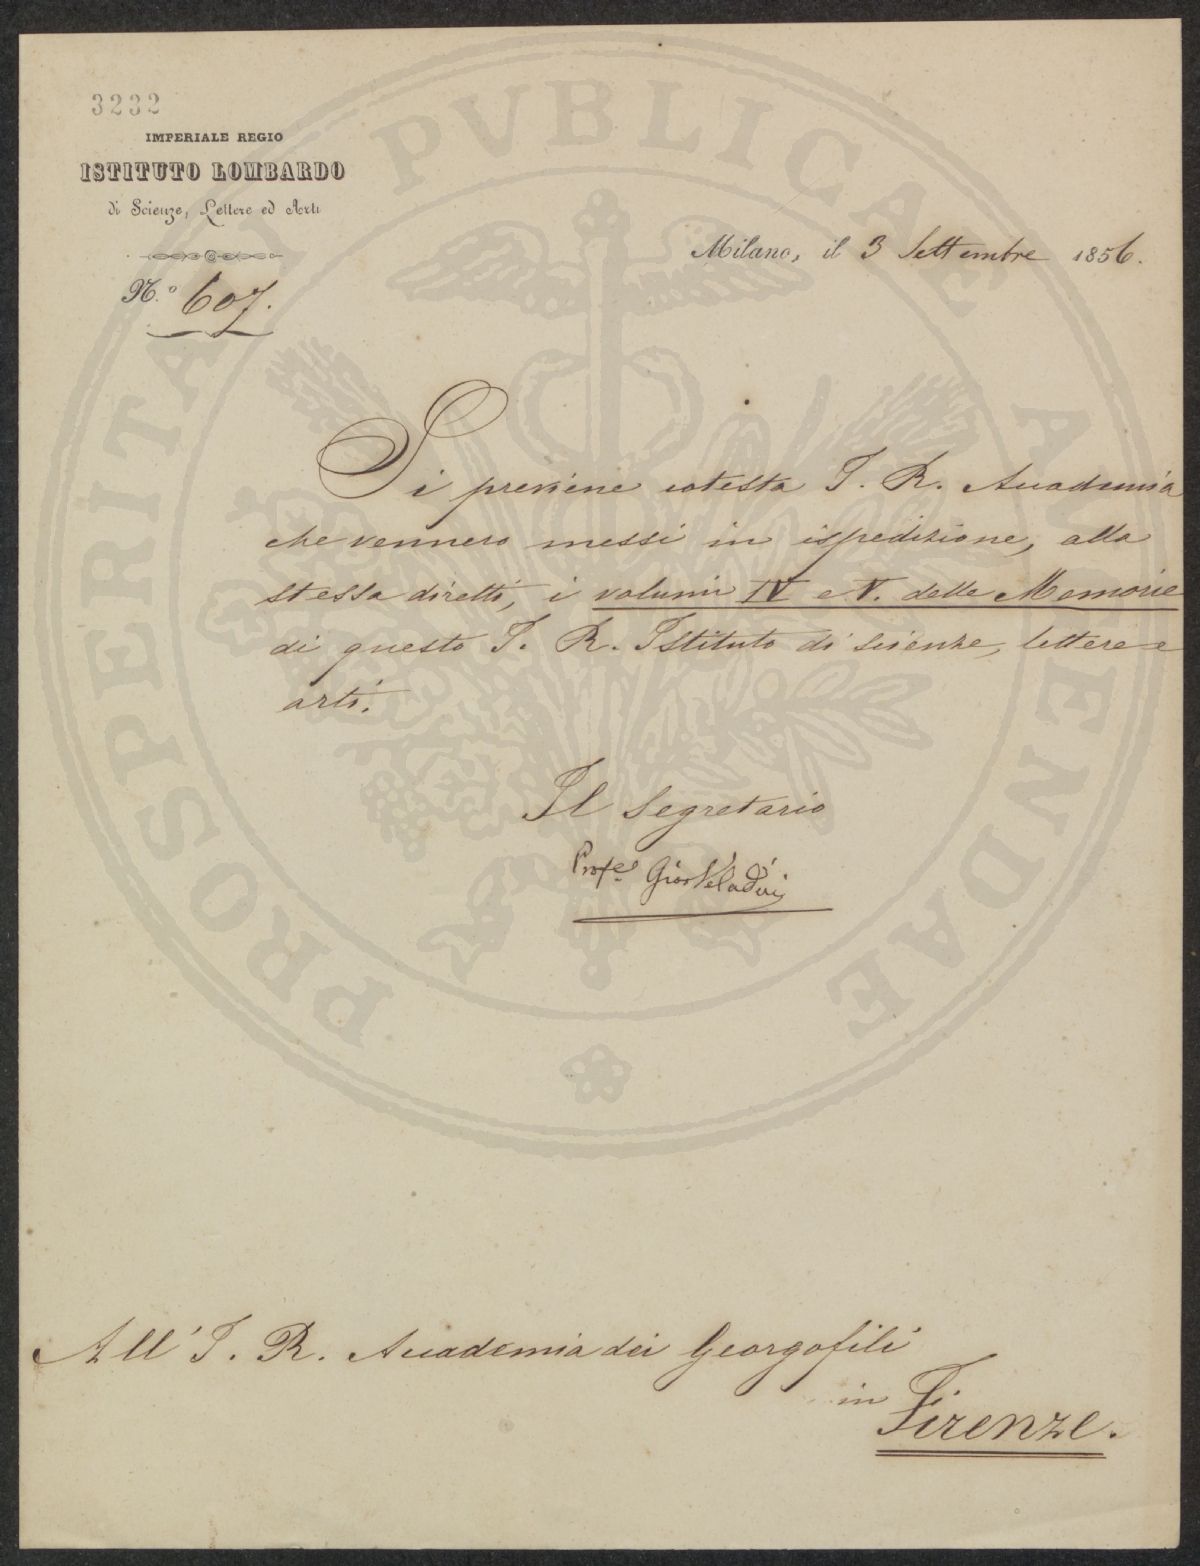 3232
IMPERIALE REGIO
ISTITUTO LOMBARDO
di Scienze, Lettere ed Arti
N.º 607.
Milano, il 3 Settembre 1856.
Si previene cotesta I. R. Accademia
che vennero messi in ispedizione, alla
stessa diretti, i volumi IV e V. delle Memorie
di questo I. R. Istituto di scienze, lettere e
arti.
Il Segretario
Profe. Gio. Veladini
All' I. R. Accademia dei Georgofili
in Firenze.
PROSPERITATI PVBLICAE AVGENDAE